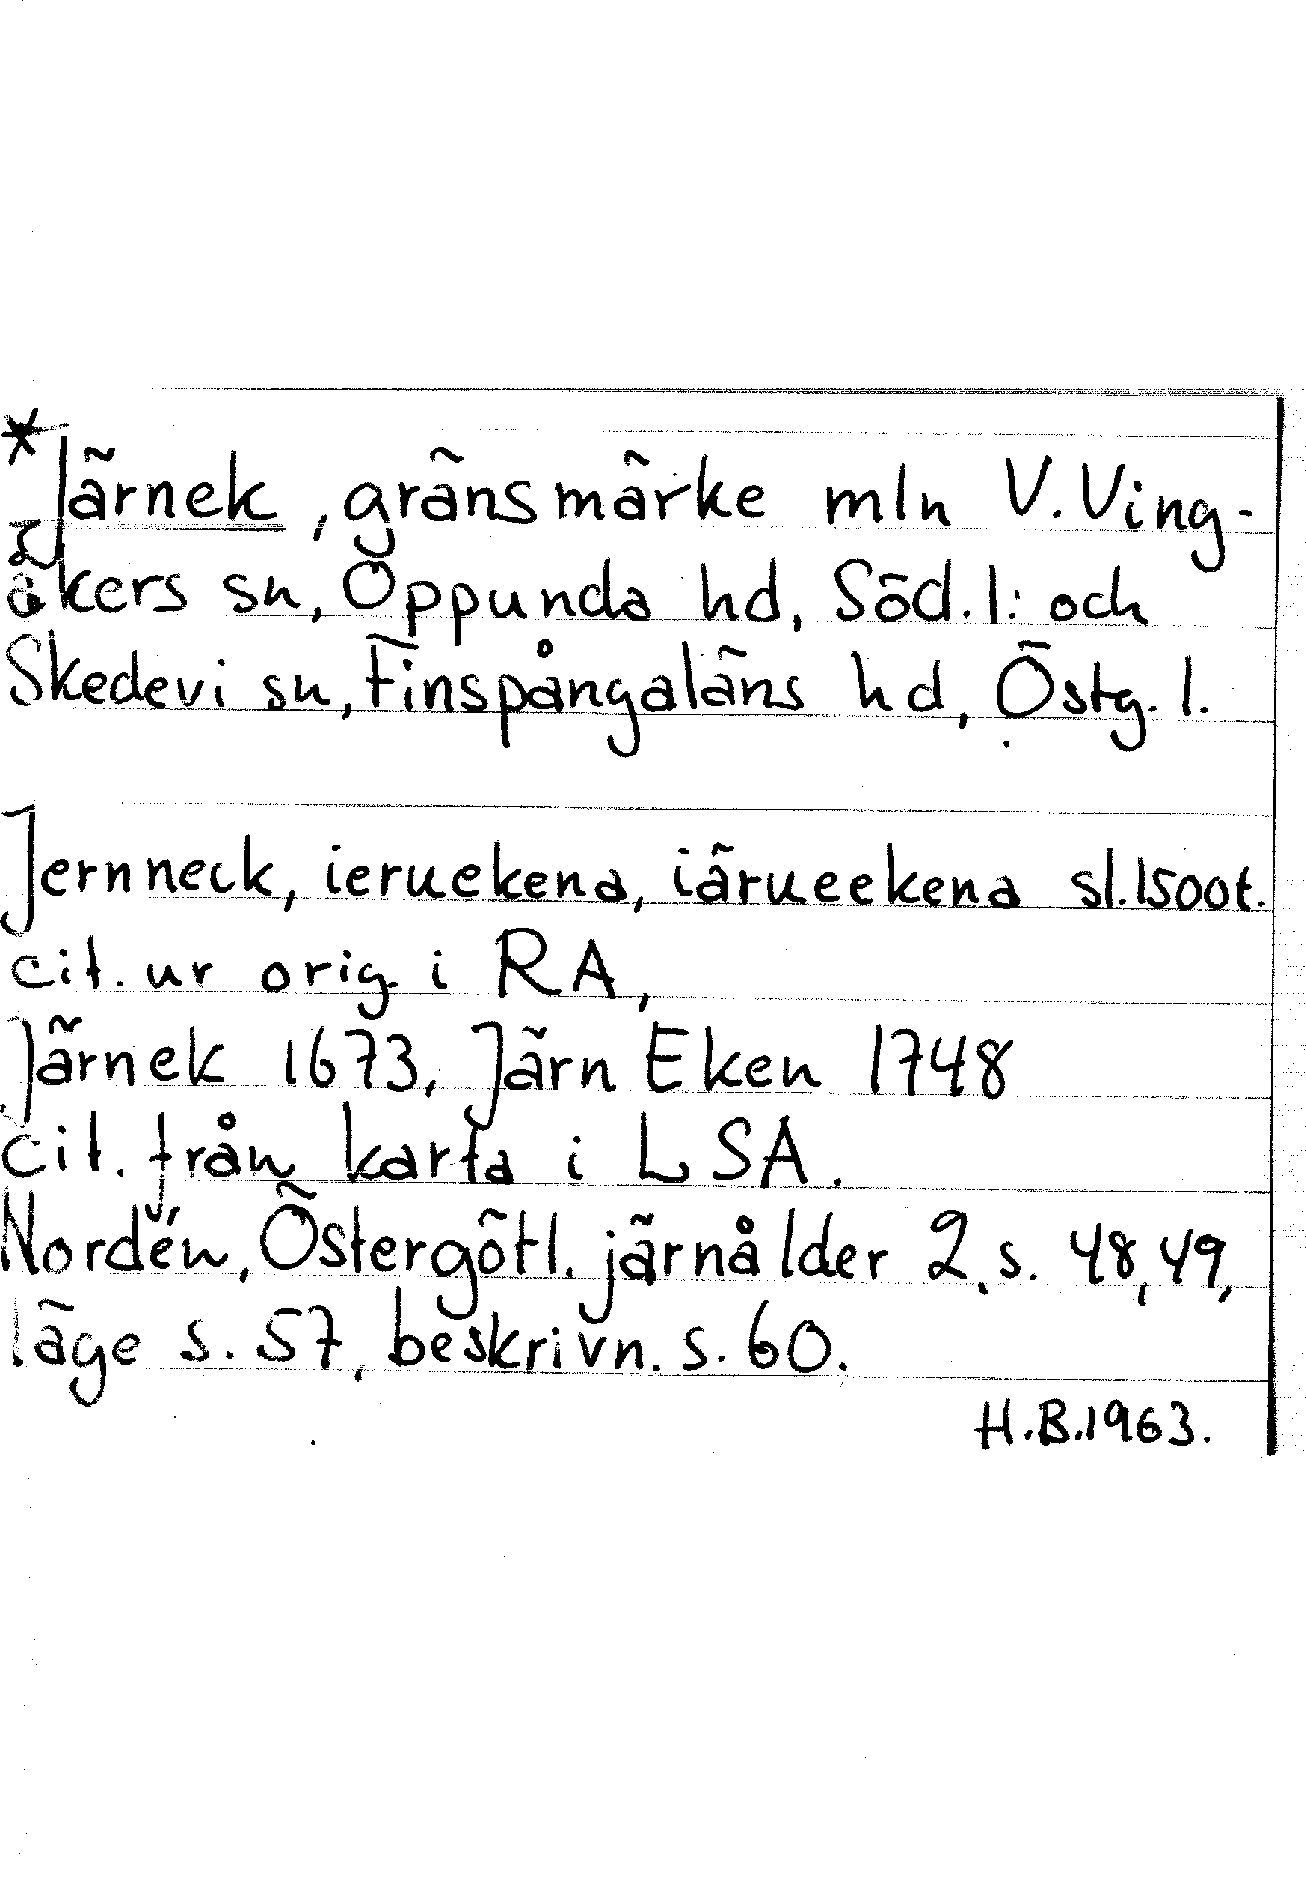 * Järnek, gränsmärke mln V. Ving-
åkers sn, Oppunda hd, Söd. l: och
Skedevi sn, Finspångaläns hd, Östg. l.
Jernneck, ieruekena, iärueekena sl. 1500t.
cit. ur orig i RA,
Järnek 1673, Järn Eken 1748
cit. från karta i LSA.
Nordén, Östergötl. järnålder 2, s. 48, 49,
läge s. 57, beskrivn. s. 60.
H.B. 1963.